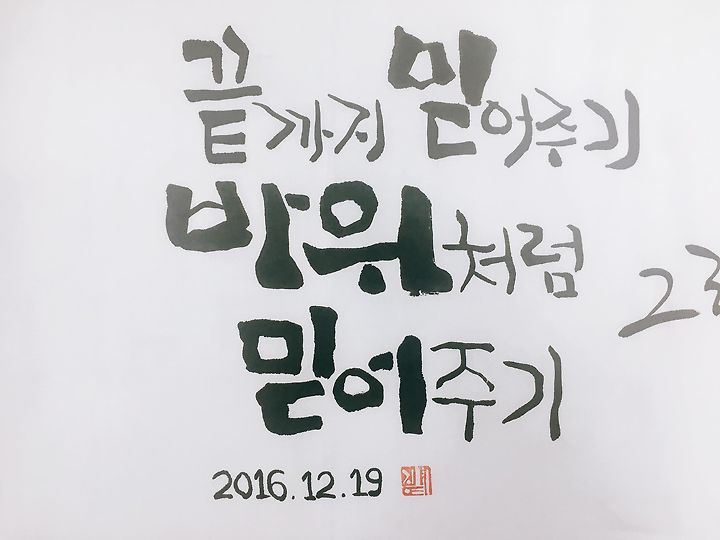 끝까지 믿어주기
바위처럼
믿어주기
2016.12.19